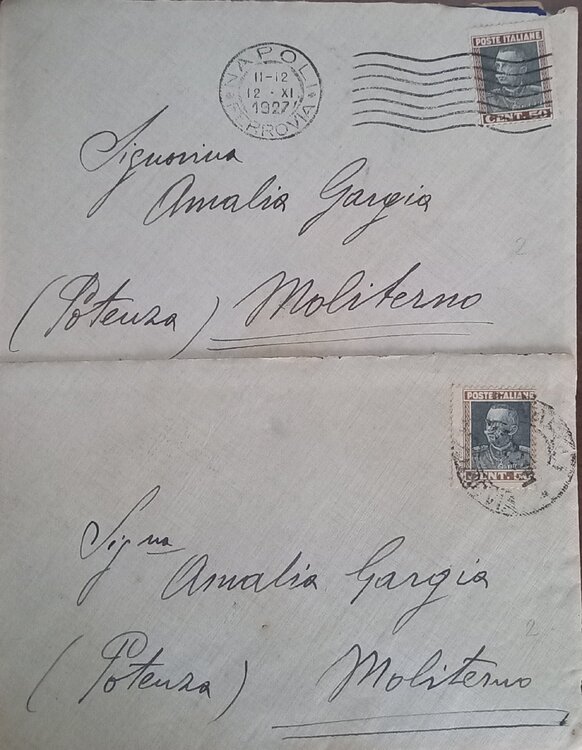 NAPOLI
11-12
12 · XI
1927
FERROVIA
POSTE ITALIANE
CENT. 50
Signorina
Amalia Gargia
(Potenza) Moliterno
2
POSTE ITALIANE
CENT. 50
Signa
Amalia Gargia
2
(Potenza) Moliterno